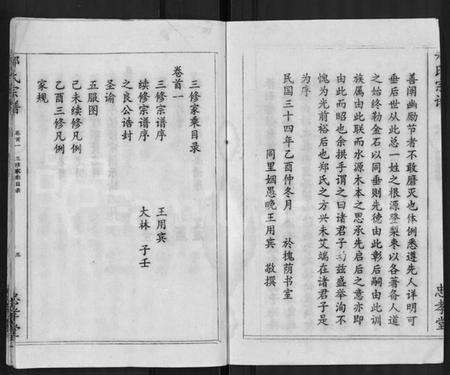 善闡幽勵節者不敢磨灭也体例悉遵先人详明可
垂后世从此总一姓之根源墜梨枣以各著各人道
之始终勒金石以同垂则先德由此彰后嗣由此训
族属由此联而水源木本之思承先启后之意亦即
由此而昭也余拱手谓之曰诸君子为兹盛举洵不
愧为光前裕后也郑氏之方兴未艾端在诸君子是
为序
民国三十四年乙酉仲冬月 於槐荫书室
同里姻愚晚王用宾 敬撰
忠孝堂
郑氏宗谱
卷首一 三修家乘目录
忠孝堂
三修家乘目录
卷首一
三修宗谱序 王用宾
续修宗谱序 大林 子壬
之良公诰封
圣谕
五服图
己未续修凡例
乙酉三修凡例
家规